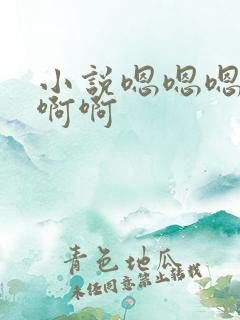 小説嗯嗯嗯
啊啊
青色地瓜
未经同意禁止转载